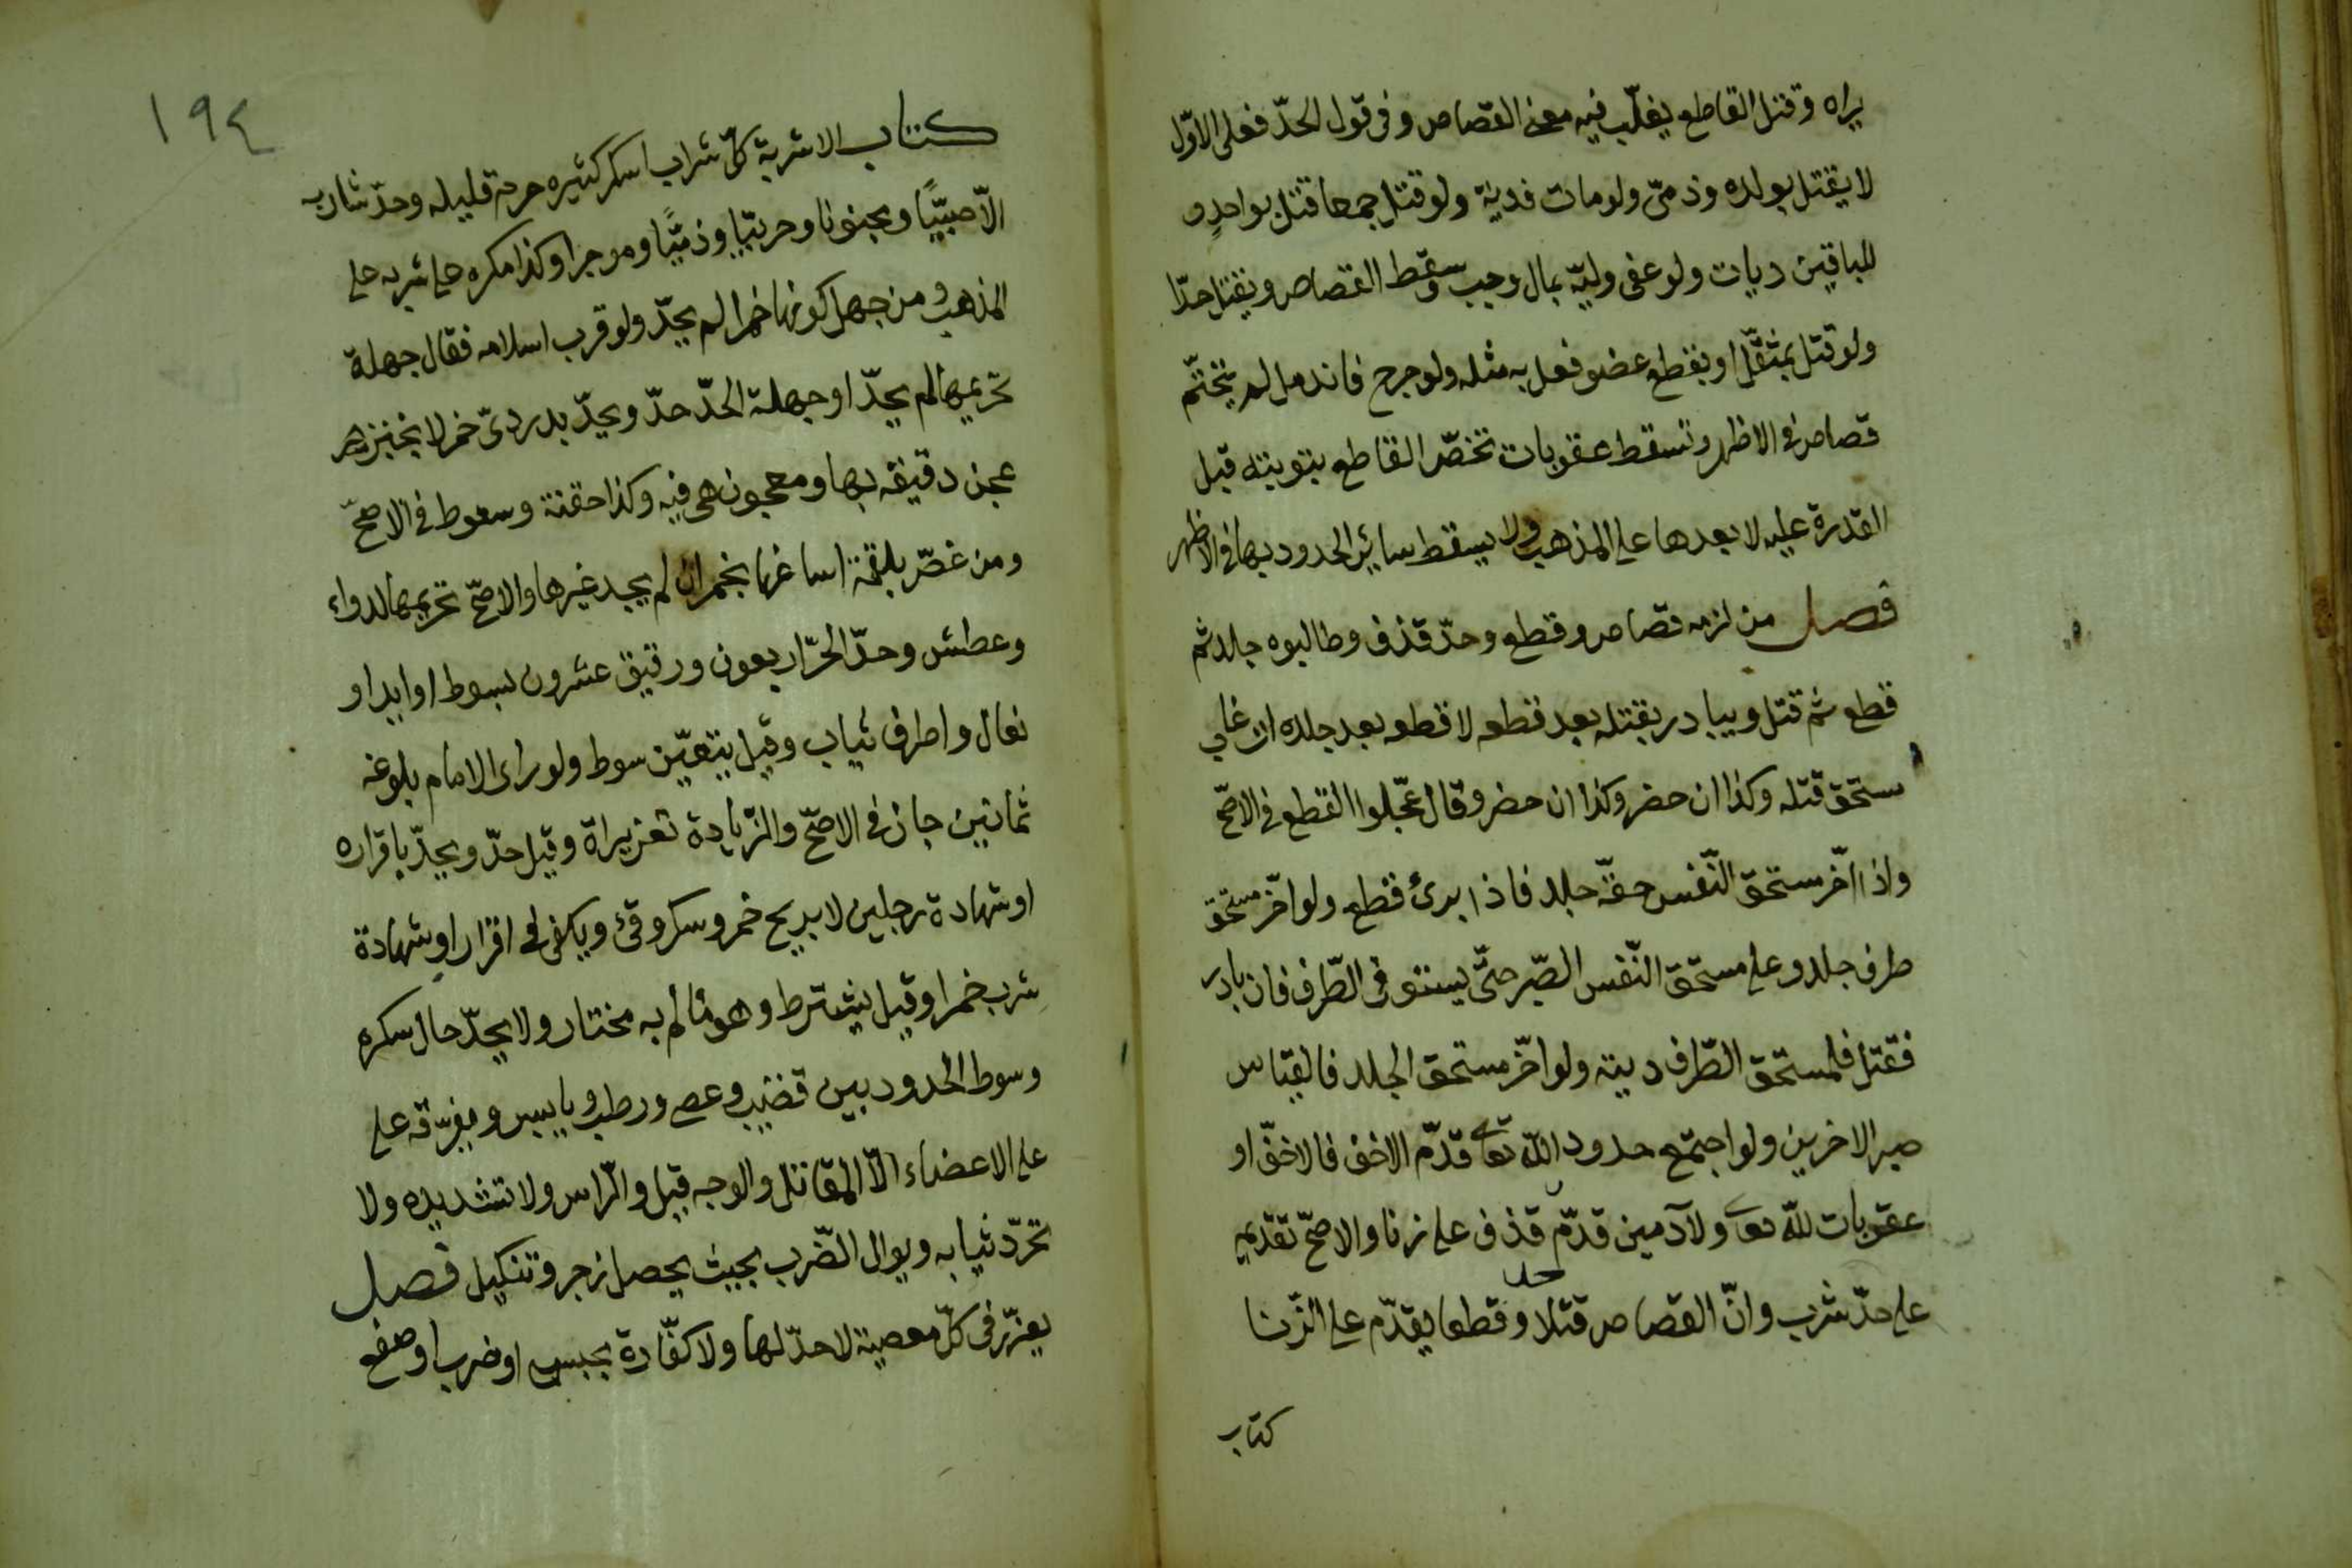 يراه وقتل القاطع يغلّب فيه معنى القصاص وفي قول الحدّ فعلى الاوّل
لا يقتل بولده وذمّى ولومات فدية ولو قتل جمعا قتل بواحدٍ و
للباقين ديات ولو عفى وليّه بمال وجب وسقط القصاص ويقتل حدّا
ولو قتل بمثقّل او بقطع عضو فعل به مثله ولو جرح فاندمل لم يتحتّم
قصاص فى الاظهر وتسقط عقوبات تخصّ القاطع بتوبته قبل
القدرة عليه لا بعدها على المذهب ولا يسقط سائر الحدود بها فى الاظهر
فصل من لزمه قصاص وقطع وحدّ قذف وطالبوه جلد ثم
قطع ثم قتل ويبادر بقتله بعد قطعه لا قطعه بعد جلده ان غاب
مستحق قتله وكذا ان حضر وكذا ان حضر وقال عجّلوا القطع فى الاصحّ
واذا اخّر مستحق النّفس حقّه جلد فاذا برئ قطع ولو اخّر مستحق
طرف جلد وعلى مستحق النّفس الصّبر حتّى يستوفى الطّرف فان بادر
فقتل فلمستحق الطّرف ديته ولو اخّر مستحق الجلد فالقياس
صبر الاخرين ولو اجتمع حدود الله تعا قدّم الاخف فالاخفّ او
عقوبات للّه تعا ولآدمين قدّم حد قذف على زنا والاصحّ تقديمه
على حدّ شرب وانّ القصاص قتلا وقطعا يقدّم على الزّنا
كتاب
١٩٤
كتاب الاشربة كلّ شراب اسكر كثيره حرم قليله وحدّ شاربه
الّا صبيّيًا ومجنونا وحربيّا وذمّيًّا وموجرا وكذا مكره على شربه على
المذهب ومن جهل كونها خمرا لم يحدّ ولو قرب اسلامه فقال جهلة
تحريمها لم يحدّ او جهلة الحدّ حدّ ويحدّ بدردىّ خمر لا بخبز
عجن دقيقه بها ومعجون هى فيه وكذا حقنة وسعوط فى الاصحّ
ومن غصّ بلقمة اساغها بخمر ان لم يجد غيرها والاصحّ تحريمها لدواء
وعطش وحدّ الحرّ اربعون ورقيق عشرون بسوط او ايد او
نعال واطرف ثياب وقيل يتعيّن سوط ولو راى الامام بلوغه
ثمانين جاز فى الاصحّ والزّيادة تعزيراة وقيل حدّ ويحدّ باقراره
او شهادة رجلين لا بريح خمر وسكر وقئ ويكفى فى اقرار او شهادة
شرب خمرا وقيل يشترط وهو عالم به مختار ولا يحدّ حال سكره
وسوط الحدود بين قضيب وعصى ورطب ويابس ويفرّقه على
على الاعضاء الّا المقاتل والوجه قيل والرّاس ولا تشد يده ولا
تجرّد ثيابه ويوال الضّرب بحيث يحصل زجر وتنكيل فصل
يعزّر فى كلّ معصية لا حدّ لها ولا كفّارة بحبس او ضرب او صفع